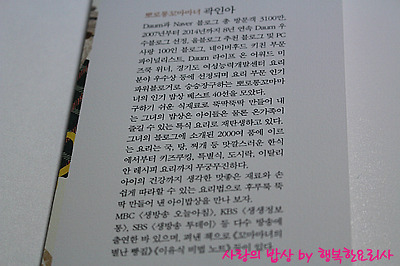 뽀로롱꼬마마녀 곽인아
Daum과 Naver 블로그 총 방문객 3100만,
2007년부터 2014년까지 8년 연속 Daum 우
수블로그 선정, 올블로그 추천 블로그 및 PC
사랑 100인 블로그, 네이버후드 키친 부문
파이널리스트, Daum 라이프 온 어워드 미
즈쿡 위너, 경기도 여성능력개발센터 요리
분야 우수상 등에 선정되며 요리 부문 인기
파워블로거로 승승장구하는 뽀로롱꼬마마
녀의 인기 밥상 베스트 40선을 모았다.
구하기 쉬운 식재료로 뚝딱뚝딱 만들어 내
는 그녀의 밥상은 아이들은 물론 온가족이
즐길 수 있는 특식 요리로 재탄생하고 있다.
그녀의 블로그에 소개된 2000여 품에 이르
는 요리는 국, 탕, 찌개 등 맛깔스러운 한식
에서부터 키즈쿠킹, 특별식, 도시락, 이탈리
안 레시피 요리까지 무궁무진하다.
아이의 건강까지 생각한 맛좋은 재료와 손
쉽게 따라할 수 있는 요리법으로 후루룩 뚝
딱 만들어 낸 아이밥상을 만나 보자.
MBC 〈생방송 오늘아침〉, KBS 〈생생정보
통〉, SBS 〈생방송 투데이〉 등 다수 방송에
출연한 바 있으며, 펴낸 책으로 《꼬마마녀의
별난 빵집》 《이유식 비법 노트》 등이 있다.
사랑의 밥상 by 행복한요리사